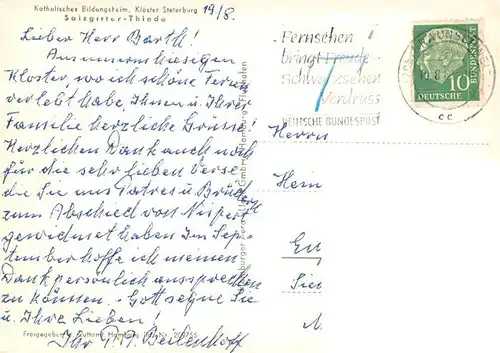 Katholisches Bildungsheim, Kloster Steterburg
Salzgitter-Thiede
19/8.
Lieber Herr Barth!
Aus unserm hiesigen
Kloster, wo ich schöne Ferien
verlebt habe, Ihnen u. Ihrer
Familie herzliche Grüsse!
Herzlichen Dank auch noch
für die sehr lieben Verse
die Sie uns Patres u. Brüdern
zum Abschied von
gewidmet haben. Im Sep-
tember hoffe ich meinen
Dank persönlich aussprechen
zu können. Gott segne Sie
u. Ihre Lieben!
Ihr P. P. Beilenhoff
Freigegeben Hamburg Nr. 209755
Fernsehen
bringt Freude
Schwarzsehen
Verdruss
DEUTSCHE BUNDESPOST
cc
DEUTSCHE BUNDESPOST
10
Herrn
Hein
Sie